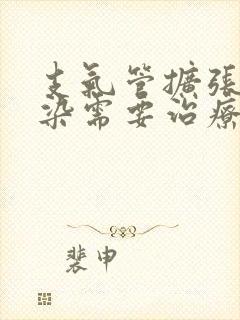 支氣管擴張
染需要治療
裴申